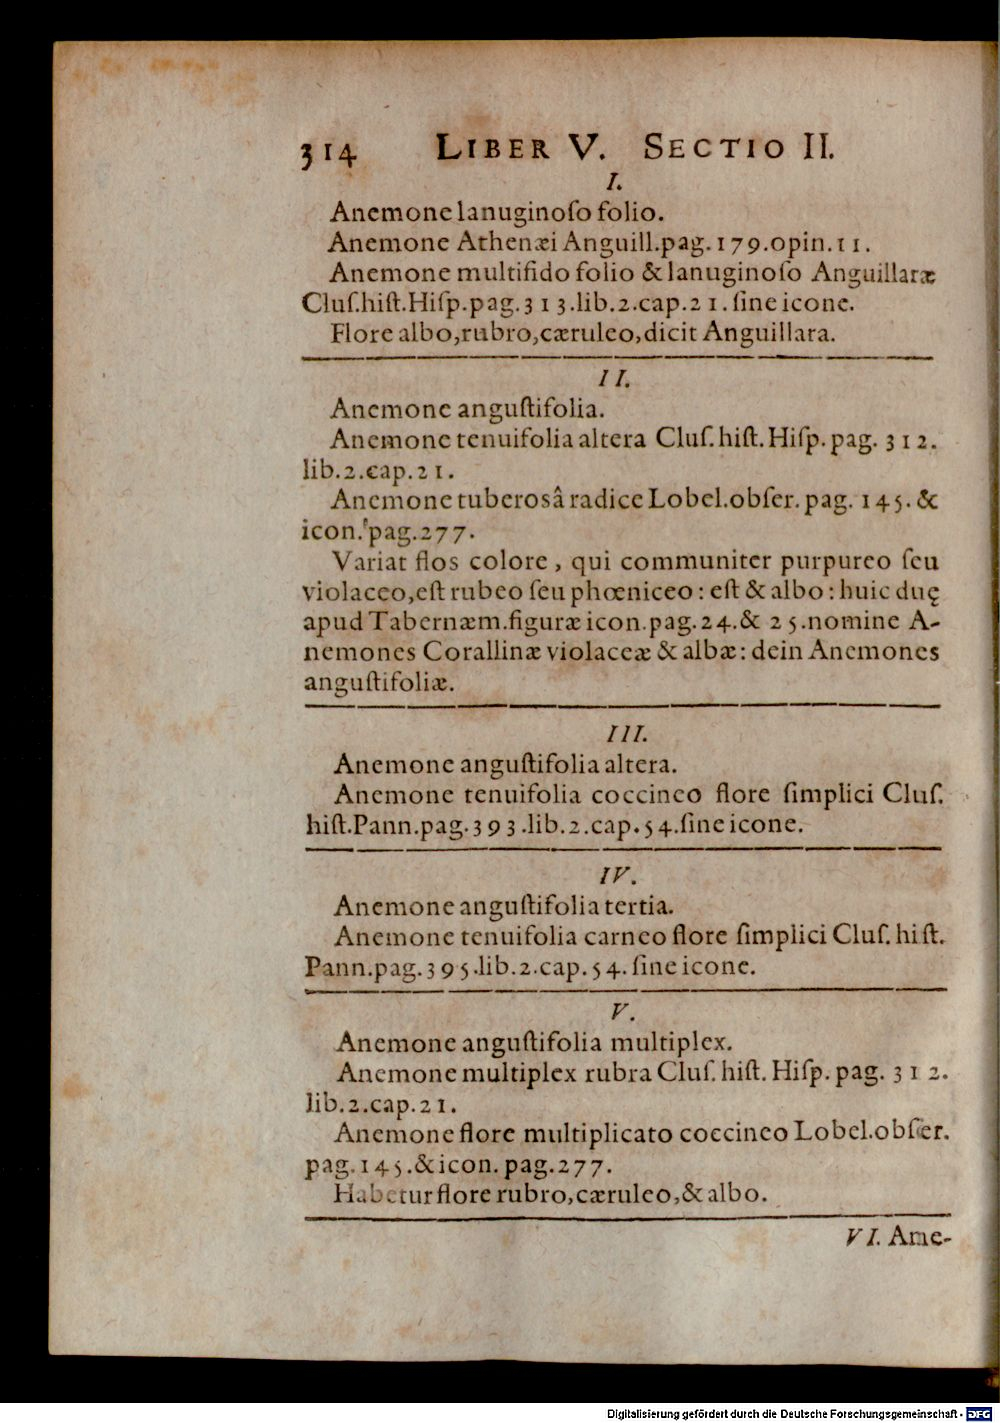 314 LIBER V. SECTIO II.
I.
Anemone lanuginoſo folio.
Anemone Athenæi Anguill.pag.179.opin.11.
Anemone multifido folio & lanuginoſo Anguillaræ
Cluſ.hiſt.Hiſp.pag.313.lib.2.cap.21.ſine icone.
Flore albo,rubro,cæruleo,dicit Anguillara.
II.
Anemone anguſtifolia.
Anemone tenuifolia altera Cluſ.hiſt.Hiſp.pag. 312.
lib.2.cap.21.
Anemone tuberosâ radice Lobel.obſer. pag. 145. &
icon. pag.277.
Variat flos colore, qui communiter purpureo ſeu
violaceo,eſt rubeo ſeu phœniceo: eſt & albo: huic duę
apud Tabernæm.figuræ icon.pag.24.& 25.nomine A-
nemones Corallinæ violaceæ & albæ: dein Anemones
anguſtifoliæ.
III.
Anemone anguſtifolia altera.
Anemone tenuifolia coccineo flore ſimplici Cluſ.
hiſt.Pann.pag.393.lib.2.cap.54.ſine icone.
IV.
Anemone anguſtifolia tertia.
Anemone tenuifolia carneo flore ſimplici Cluſ. hiſt.
Pann.pag.395.lib.2.cap.54. ſine icone.
V.
Anemone anguſtifolia multiplex.
Anemone multiplex rubra Cluſ. hiſt. Hiſp. pag. 312.
lib.2.cap.21.
Anemone flore multiplicato coccineo Lobel.obſer.
pag.145.& icon. pag.277.
Habetur flore rubro,cæruleo,& albo.
VI. Ame-
Digitalisierung gefördert durch die Deutsche Forschungsgemeinschaft - DFG